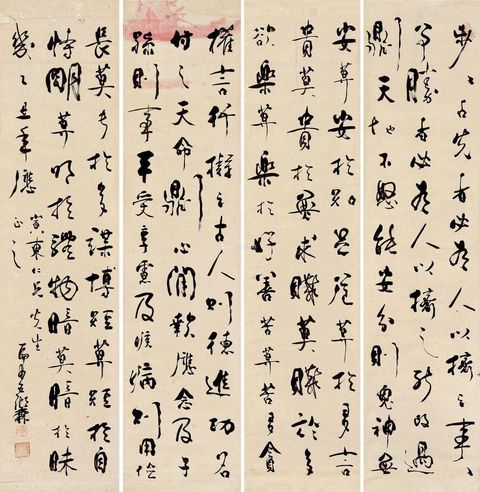 步步占先者必有人以擠之事
事爭勝者必有人以挫之能改過
則天地不怒能安分則鬼神無
安莫安於知足危莫危於多言
貴莫貴於無求賤莫賤於多
欲樂莫樂於好善苦莫苦於多貪
權言行擬之古人則德進功名
付之天命則心閒報應念及子
孫則事平受享慮及疾病則用儉
長莫長於謀博短莫短於自
恃明莫明於體物暗莫暗於昧
幾
寅東仁兄先生
正之